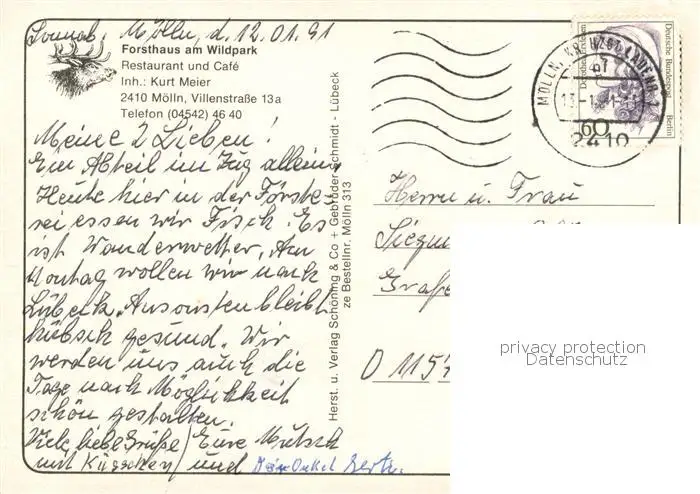 Sonnab. Mölln, d. 12.01.91
Forsthaus am Wildpark
Restaurant und Café
Inh.: Kurt Meier
2410 Mölln, Villenstraße 13a
Telefon (04542) 46 40
Meine 2 Lieben!
Ein Abteil im Zug allein,
Heute hier in der Förste-
rei essen wir Fisch. Es
ist Wanderwetter. Am
Montag wollen wir nach
Lübeck. Ansonsten bleibt
hübsch gesund. Wir
werden uns auch die
Tage nach Möglichkeit
schön gestalten.
Viele liebe Grüße / Eure Mutsch
mit Küsschen / und Dein Onkel
Herst. u. Verlag Schöning & Co + Gebrüder Schmidt - Lübeck
ze Bestellnr. Mölln 313
Deutsche Bundespost
Berlin
60
MÖLLN
2410
Herrn u. Frau
Siegm
Graße
O 115
privacy protection
Datenschutz